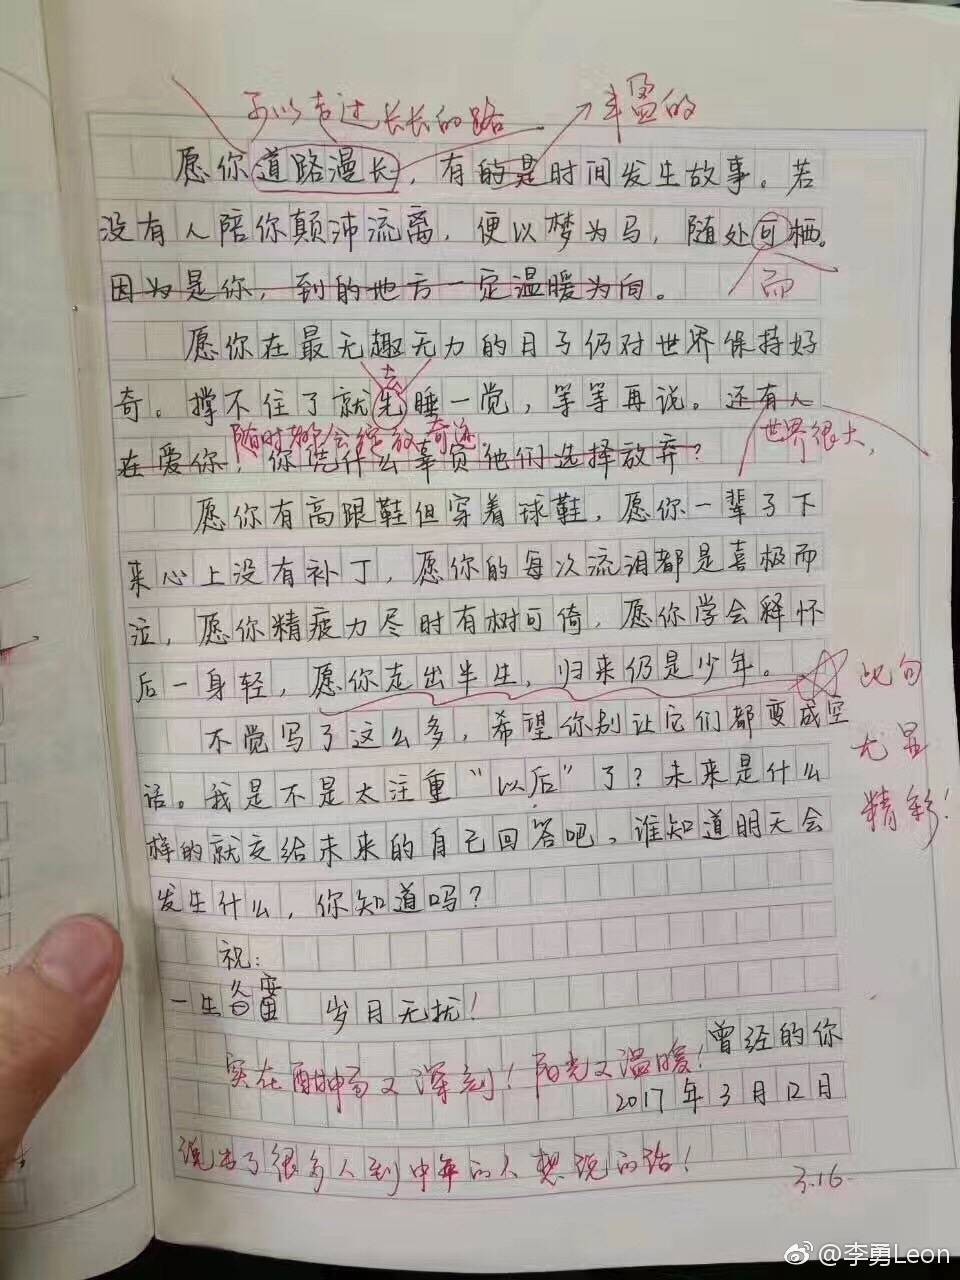 可以走过长长的路
丰盈的
愿你道路漫长，有的是时间发生故事。若
没有人陪你颠沛流离，便以梦为马，随处可栖。
因为是你，到的地方一定温暖为向。
而
愿你在最无趣无力的日子仍对世界保持好
去
奇。撑不住了就先睡一觉，等等再说。还有人
世界很大，
随时都会绽放奇迹
在爱你，你凭什么辜负他们选择放弃？
愿你有高跟鞋但穿着球鞋，愿你一辈子下
来心上没有补丁，愿你的每次流泪都是喜极而
泣，愿你精疲力尽时有树可倚，愿你学会释怀
后一身轻，愿你走出半生，归来仍是少年。
此句
尤显
精彩！
不觉写了这么多，希望你别让它们都变成空
话。我是不是太注重“以后”了？未来是什么
样的就交给未来的自己回答吧，谁知道明天会
发生什么，你知道吗？
祝：
一生 岁月无扰！
曾经的你
实在酣畅又深刻！阳光又温暖！
2017年3月12日
说出了很多人到中年的不想说的话！
3.16
@李勇Leon